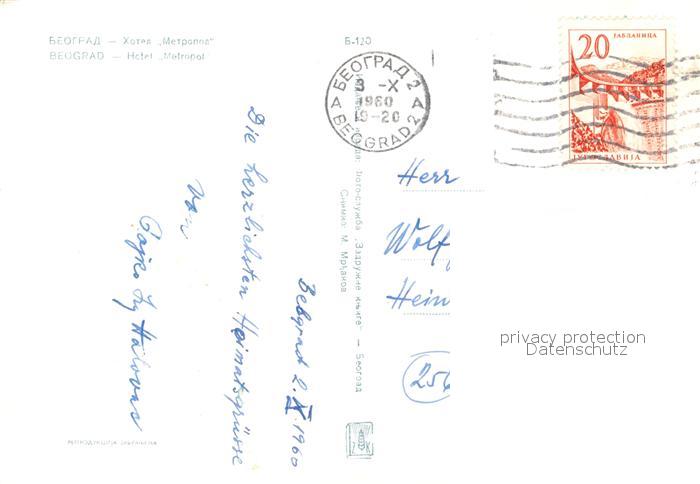 БЕОГРАД — Хотел „Метропол"
BEOGRAD — Hotel „Metropol
Б-120
БЕОГРАД 2
9 -X
1960
19-20
A BEOGRAD 2 A
ЈАБЛАНИЦА
20
ЈУГОСЛАВИЈА
Belgrad 2. X. 1960
Die herzlichsten Heimatsgrüsse
von
Фото-служба „Задружне књиге" — Београд
Снимио: М. Мрђанов
Herr
Wolf
Hein
(256
privacy protection
Datenschutz
РЕПРОДУКЦИЈА ЗАБРАЊЕНА